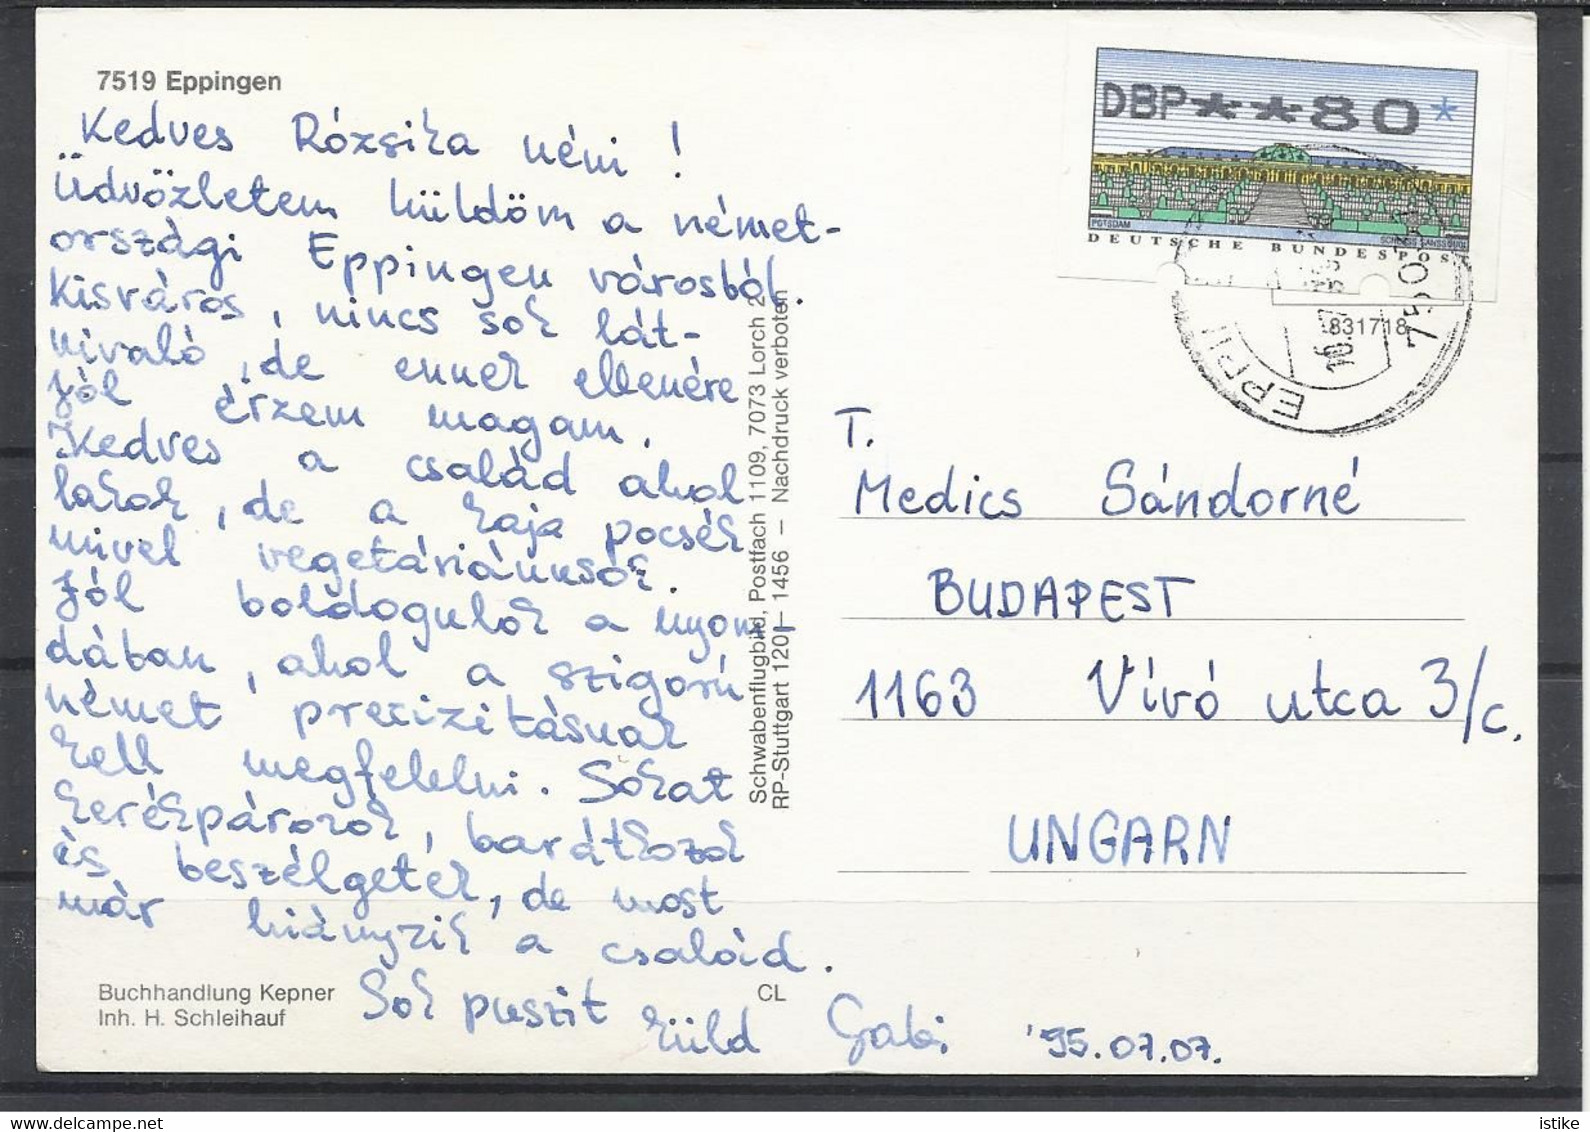 7519 Eppingen
Kedves Rózsika néni !
Üdvözletem küldöm a német-
országi Eppingen városból.
Kisváros, nincs sok lát-
nivaló, de ennek ellenére
jól érzem magam.
Kedves a család ahol
lakok, de a kaja pocsék
mivel vegetáriánusok.
Jól boldogulok a nyom-
dában, ahol a szigorú
német precizitásnak
kell megfelelni. Sokat
kerékpározok, barátkozok
és beszélgetek, de most
már hiányzik a család.
Sok puszit
küld Gabi '95.07.07.
Buchhandlung Kepner
Inh. H. Schleihauf
CL
Schwabenflugbild, Postfach 1109, 7073 Lorch 2
RP-Stuttgart 120/– 1456 – Nachdruck verboten
DBP**80*
POTSDAM
SCHLOSS SANSSOUCI
DEUTSCHE BUNDESPOST
831718
EPPI
T.
Medics Sándorné
BUDAPEST
1163 Vívó utca 3/c.
UNGARN
istike